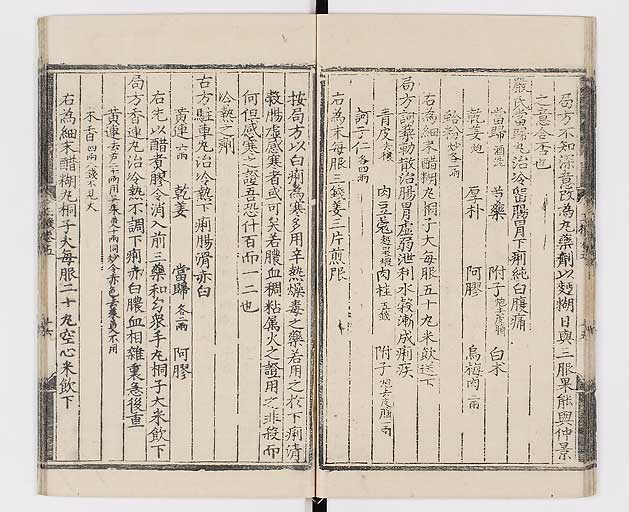 局方不知深意改為丸藥劑以麪糊日與三服果能與仲景
之意合否也
嚴氏當歸丸治冷留腸胃下痢純白腹痛
當歸酒洗 芍藥 附子炮去皮臍 白朮
乾姜炮 厚朴 阿膠 烏梅肉二兩
右為細末醋糊丸桐子大每服五十丸米飲送下
局方訶黎勒散治腸胃虛弱泄利水穀漸成痢疾
青皮去穰 肉豆蔲 肉桂五錢 附子炮去皮臍一兩
訶子仁各四兩
右為末每服三錢姜三片煎服
按局方以白痢為寒多用辛熱燥毒之藥若用之於下痢清
穀腸虛感寒者或可矣若膿血稠粘属火之證用之非殺而
何但感寒之證吾恐什百而一二也
冷熱之痢
古方駐車丸治冷熱下痢腸滑赤白
黃連六兩 乾姜 當歸各三兩 阿膠
右先以醋煮膠令消入前三藥和勻衆手丸桐子大米飲下
局方香連丸治冷熱不調下痢赤白膿血相雜裏急後重
木香四兩 不見火
右為細末醋糊丸桐子大每服二十丸空心米飲下